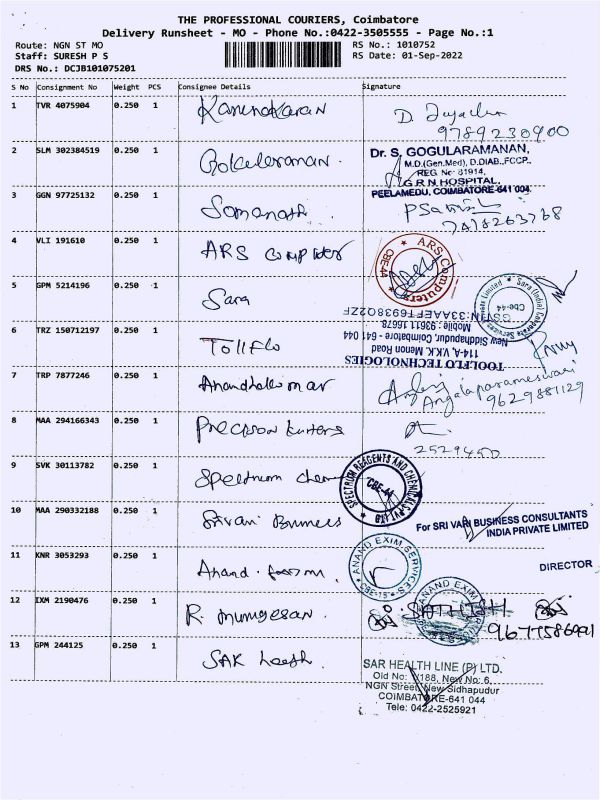 THE PROFESSIONAL COURIERS, Coimbatore
Delivery Runsheet - MO - Phone No.:0422-3505555 - Page No.:1
Route: NGN ST MO
RS No.: 1010752
Staff: SURESH P S
RS Date: 01-Sep-2022
DRS No.: DCJB101075201
S No Consignment No Weight PCS Consignee Details Signature
1 TVR 4075904 0.250 1
9789230900
2 SLM 302384519 0.250 1
Dr. S. GOGULARAMANAN,
M.D.(Gen.Med), D.DIAB.,FCCP.,
REG No: 81914,
G R N HOSPITAL,
PEELAMEDU, COIMBATORE-641 004.
3 GGN 97725132 0.250 1 Somanath
7418263768
4 VLI 191610 0.250 1 ARS Computer
ARS Computers
CBE-44
5 GPM 5214196 0.250 1 Sara
Sara (India) Corporate Services Private Limited
Cbe-44
6 TRZ 150712197 0.250 1 Tollflo
TOOLFLO TECHNOLOGIES
114-A, V.K.K. Menon Road
New Siddhapudur, Coimbatore - 641 044
Mobile: 93611 16678
7 TRP 7877246 0.250 1
Angalaparameswari
9629881129
8 MAA 294166343 0.250 1 Precision
2529450
9 SVK 30113782 0.250 1 Spectrum chem
SPECTRUM REAGENTS AND CHEMICALS PVT LTD
CBE-44
10 MAA 290332188 0.250 1 Srivari
For SRI VARI BUSINESS CONSULTANTS
INDIA PRIVATE LIMITED
DIRECTOR
11 KNR 3053293 0.250 1 Anand
ANAND EXIM SERVICES
CBE-15
12 IXM 2190476 0.250 1 R. murugesan
ANAND EXIM SERVICES
13 GPM 244125 0.250 1 SAK
SAR HEALTH LINE (P) LTD.
Old No: 1/188, New No: 6,
NGN Street, New Sidhapudur
COIMBATORE-641 044
Tele: 0422-2525921